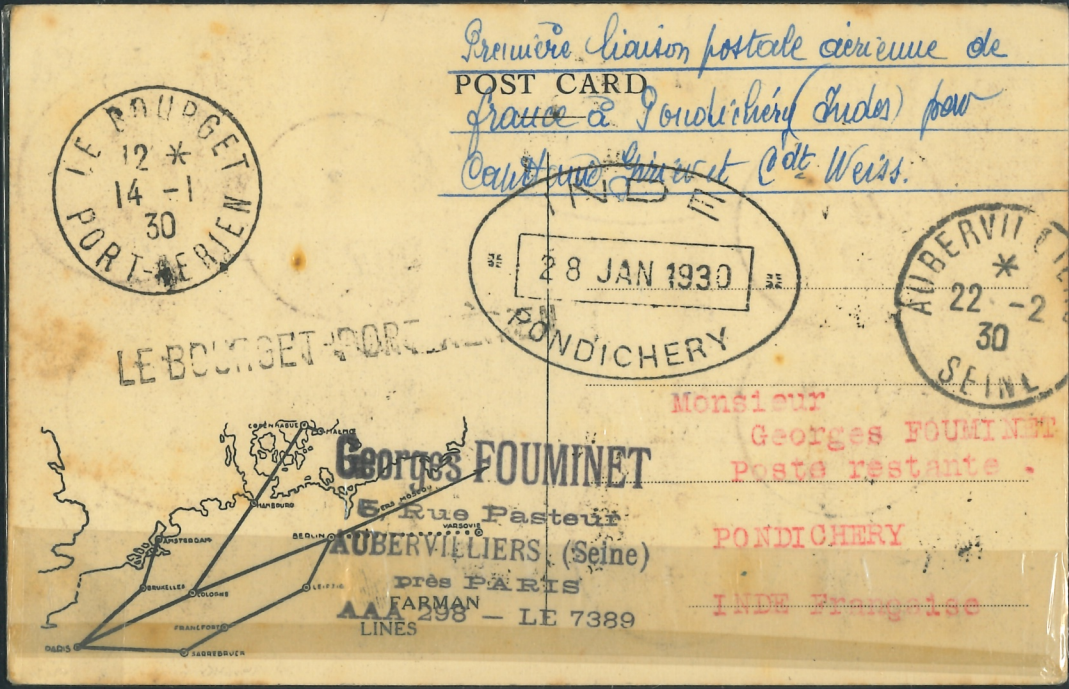 Première liaison postale aérienne de
POST CARD
france à Pondichéry (Indes) par
Weiss.
LE BOURGET
12 *
14 -1
30
PORT-AERIEN
INDE
28 JAN 1930
PONDICHERY
AUBERVILLIERS
*
22 -2
30
SEINE
LE BOURGET-PORT-AERIEN
Monsieur
Georges FOUMINET
Poste restante.
PONDICHERY
INDE Française
Georges FOUMINET
5, Rue Pasteur
AUBERVILLIERS (Seine)
près PARIS
AAA 298 — LE 7389
FARMAN
LINES
COPENHAGUE
MALMO
HAMBOURG
VERS MOSCOU
VARSOVIE
BERLIN
AMSTERDAM
BRUXELLES
COLOGNE
LEIPZIG
FRANCFORT
PARIS
SARREBRUCK